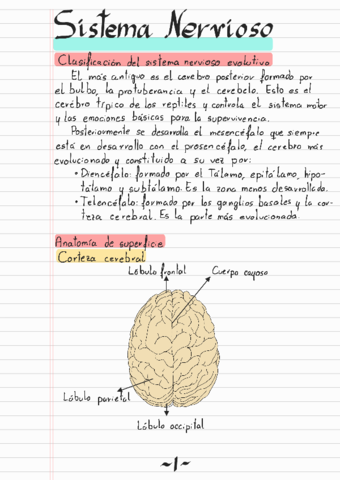 Sistema Nervioso
Clasificación del sistema nervioso evolutivo
El más antiguo es el cerebro posterior formado por
el bulbo, la protuberancia y el cerebelo. Esto es el
cerebro típico de los reptiles y controla el sistema motor
y las emociones básicas para la supervivencia.
Posteriormente se desarrolla el mesencéfalo que siempre
está en desarrollo con el prosencéfalo, el cerebro más
evolucionado y constituido a su vez por:
• Diencéfalo: formado por el Tálamo, epitálamo, hipo-
tálamo y subtálamo. Es la zona menos desarrollada.
• Telencéfalo: formado por los ganglios basales y la cor-
teza cerebral. Es la parte más evolucionada.
Anatomía de superficie
Corteza cerebral
Lóbulo frontal
Cuerpo cayoso
Lóbulo parietal
Lóbulo occipital
~1~